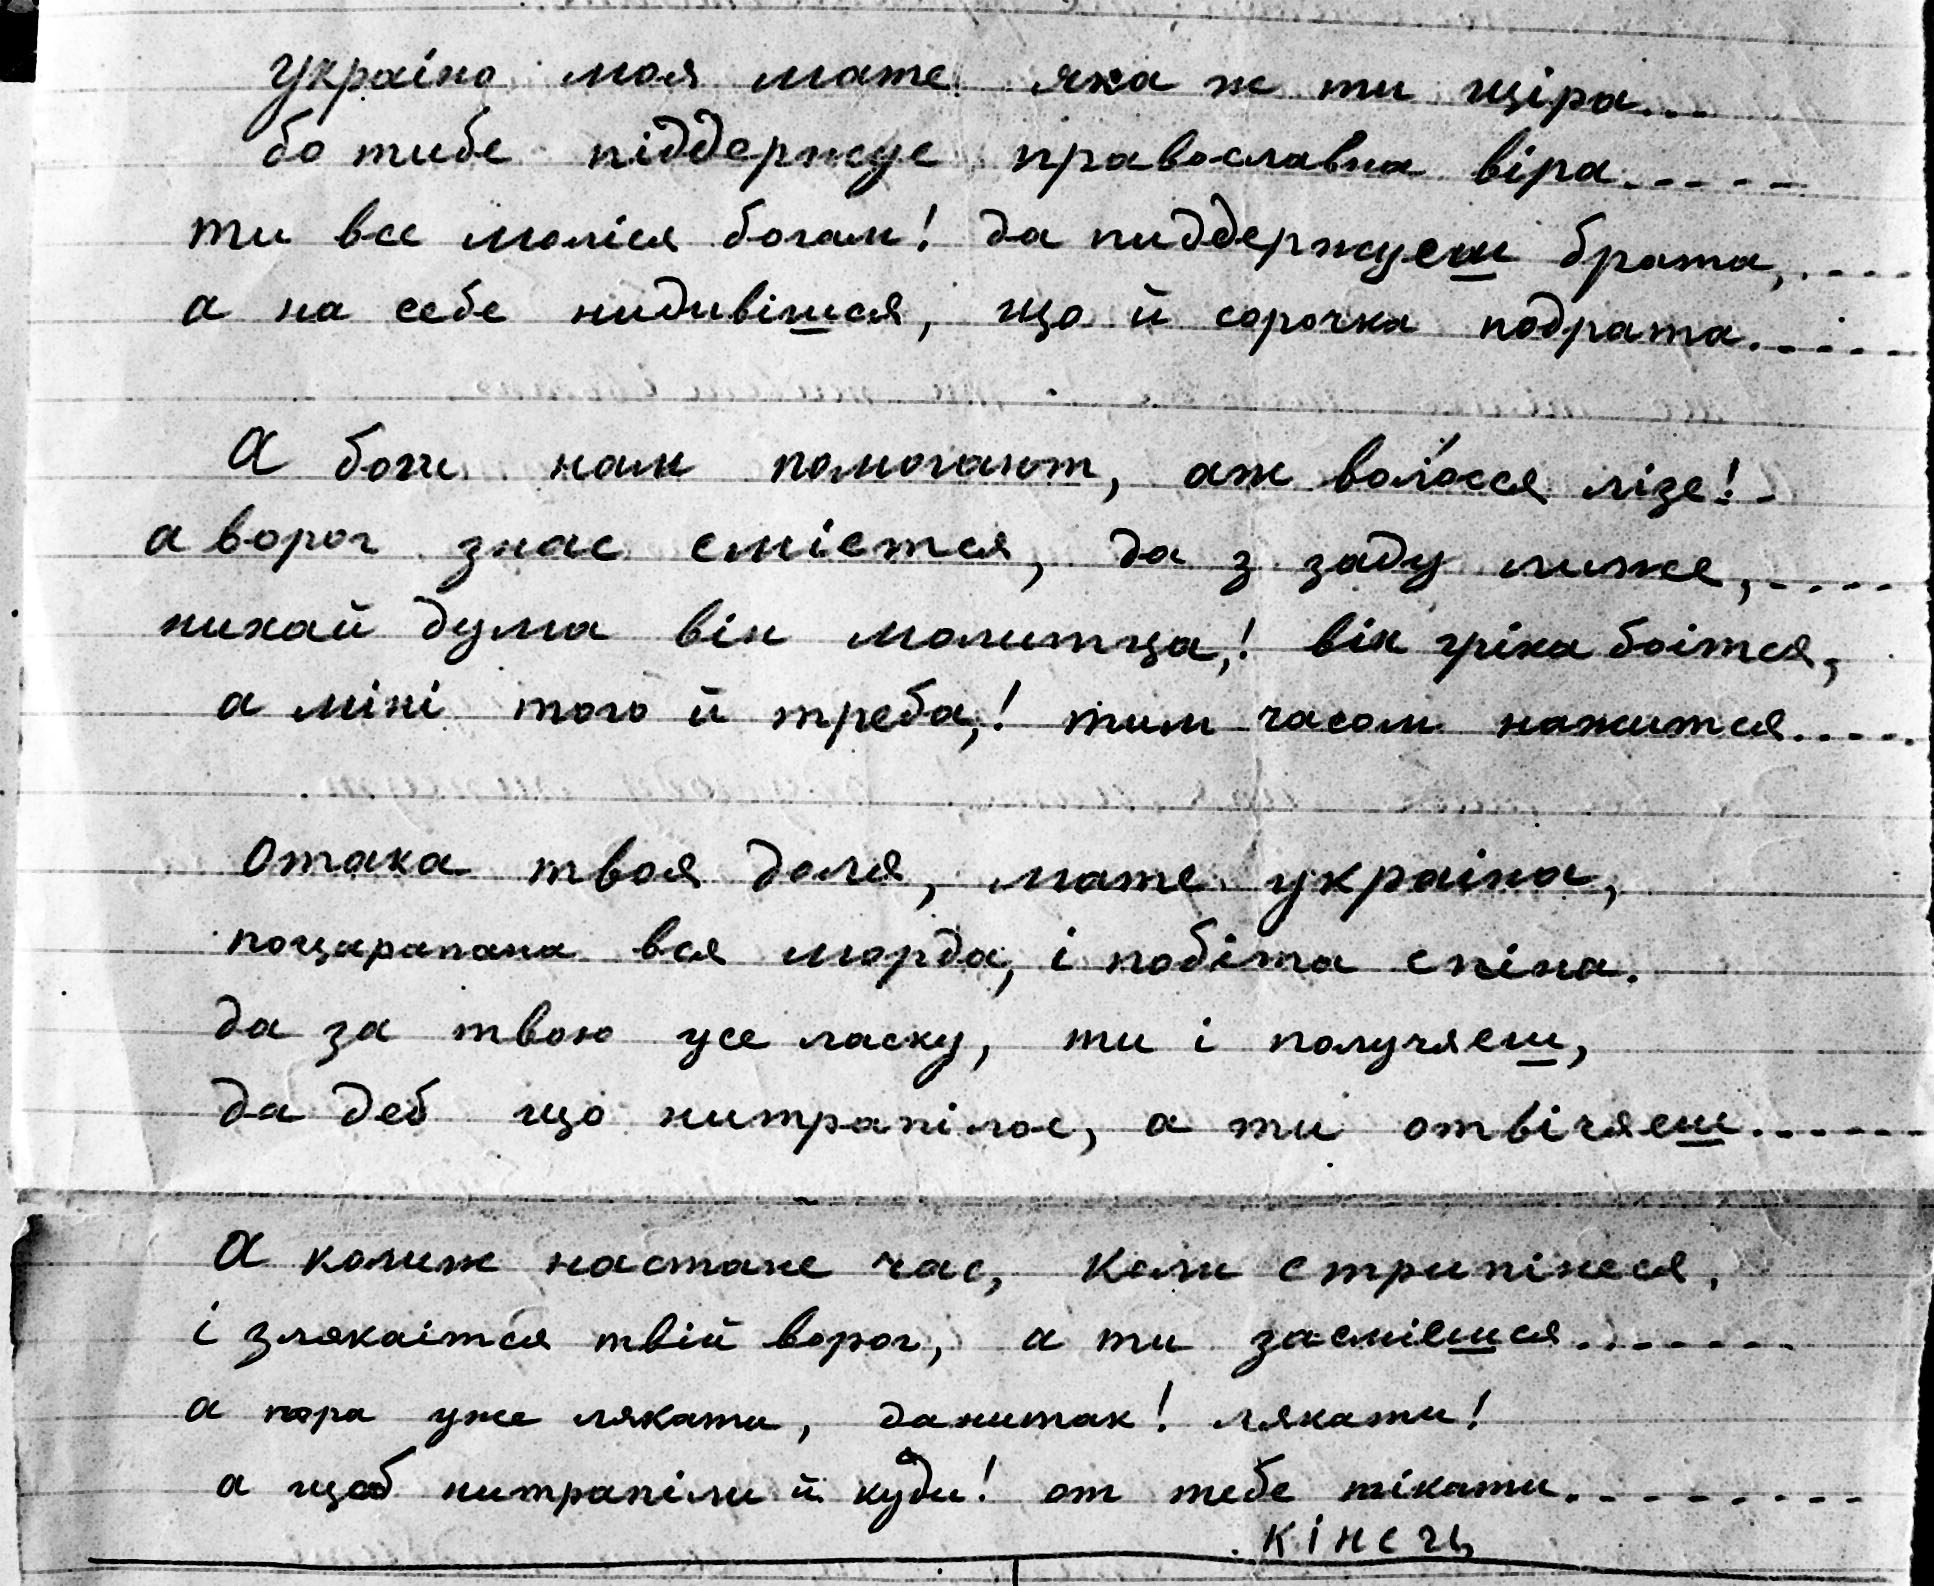 україно моя мате яка ж ти щіра...
бо тибе піддержує православна віра.....
ти все моліся богам! да пиддержуеш брата,....
а на себе нидивішся, що й сорочка подрата.....
А боги нам помогают, аж волосся лізе!-
а ворог знас сміется, да з заду лиже,....
нихай дума він молитца,! він гріха боітся,
а міні того й треба,! тим часом нажится.....
Отака твоя доля, мате україна,
поцарапана вся морда, і побіта спіна.
да за твою усе ласку, ти і получяеш,
да деб що нитрапілос, а ти отвічяеш......
А колиж настане час, коли стрипінеся,
і злякаітся твій ворог, а ти засміешся.......
а пора уже лякати, данитак! лякати!
а щоб нитрапіли й куди! от тебе тікати.........
кінець